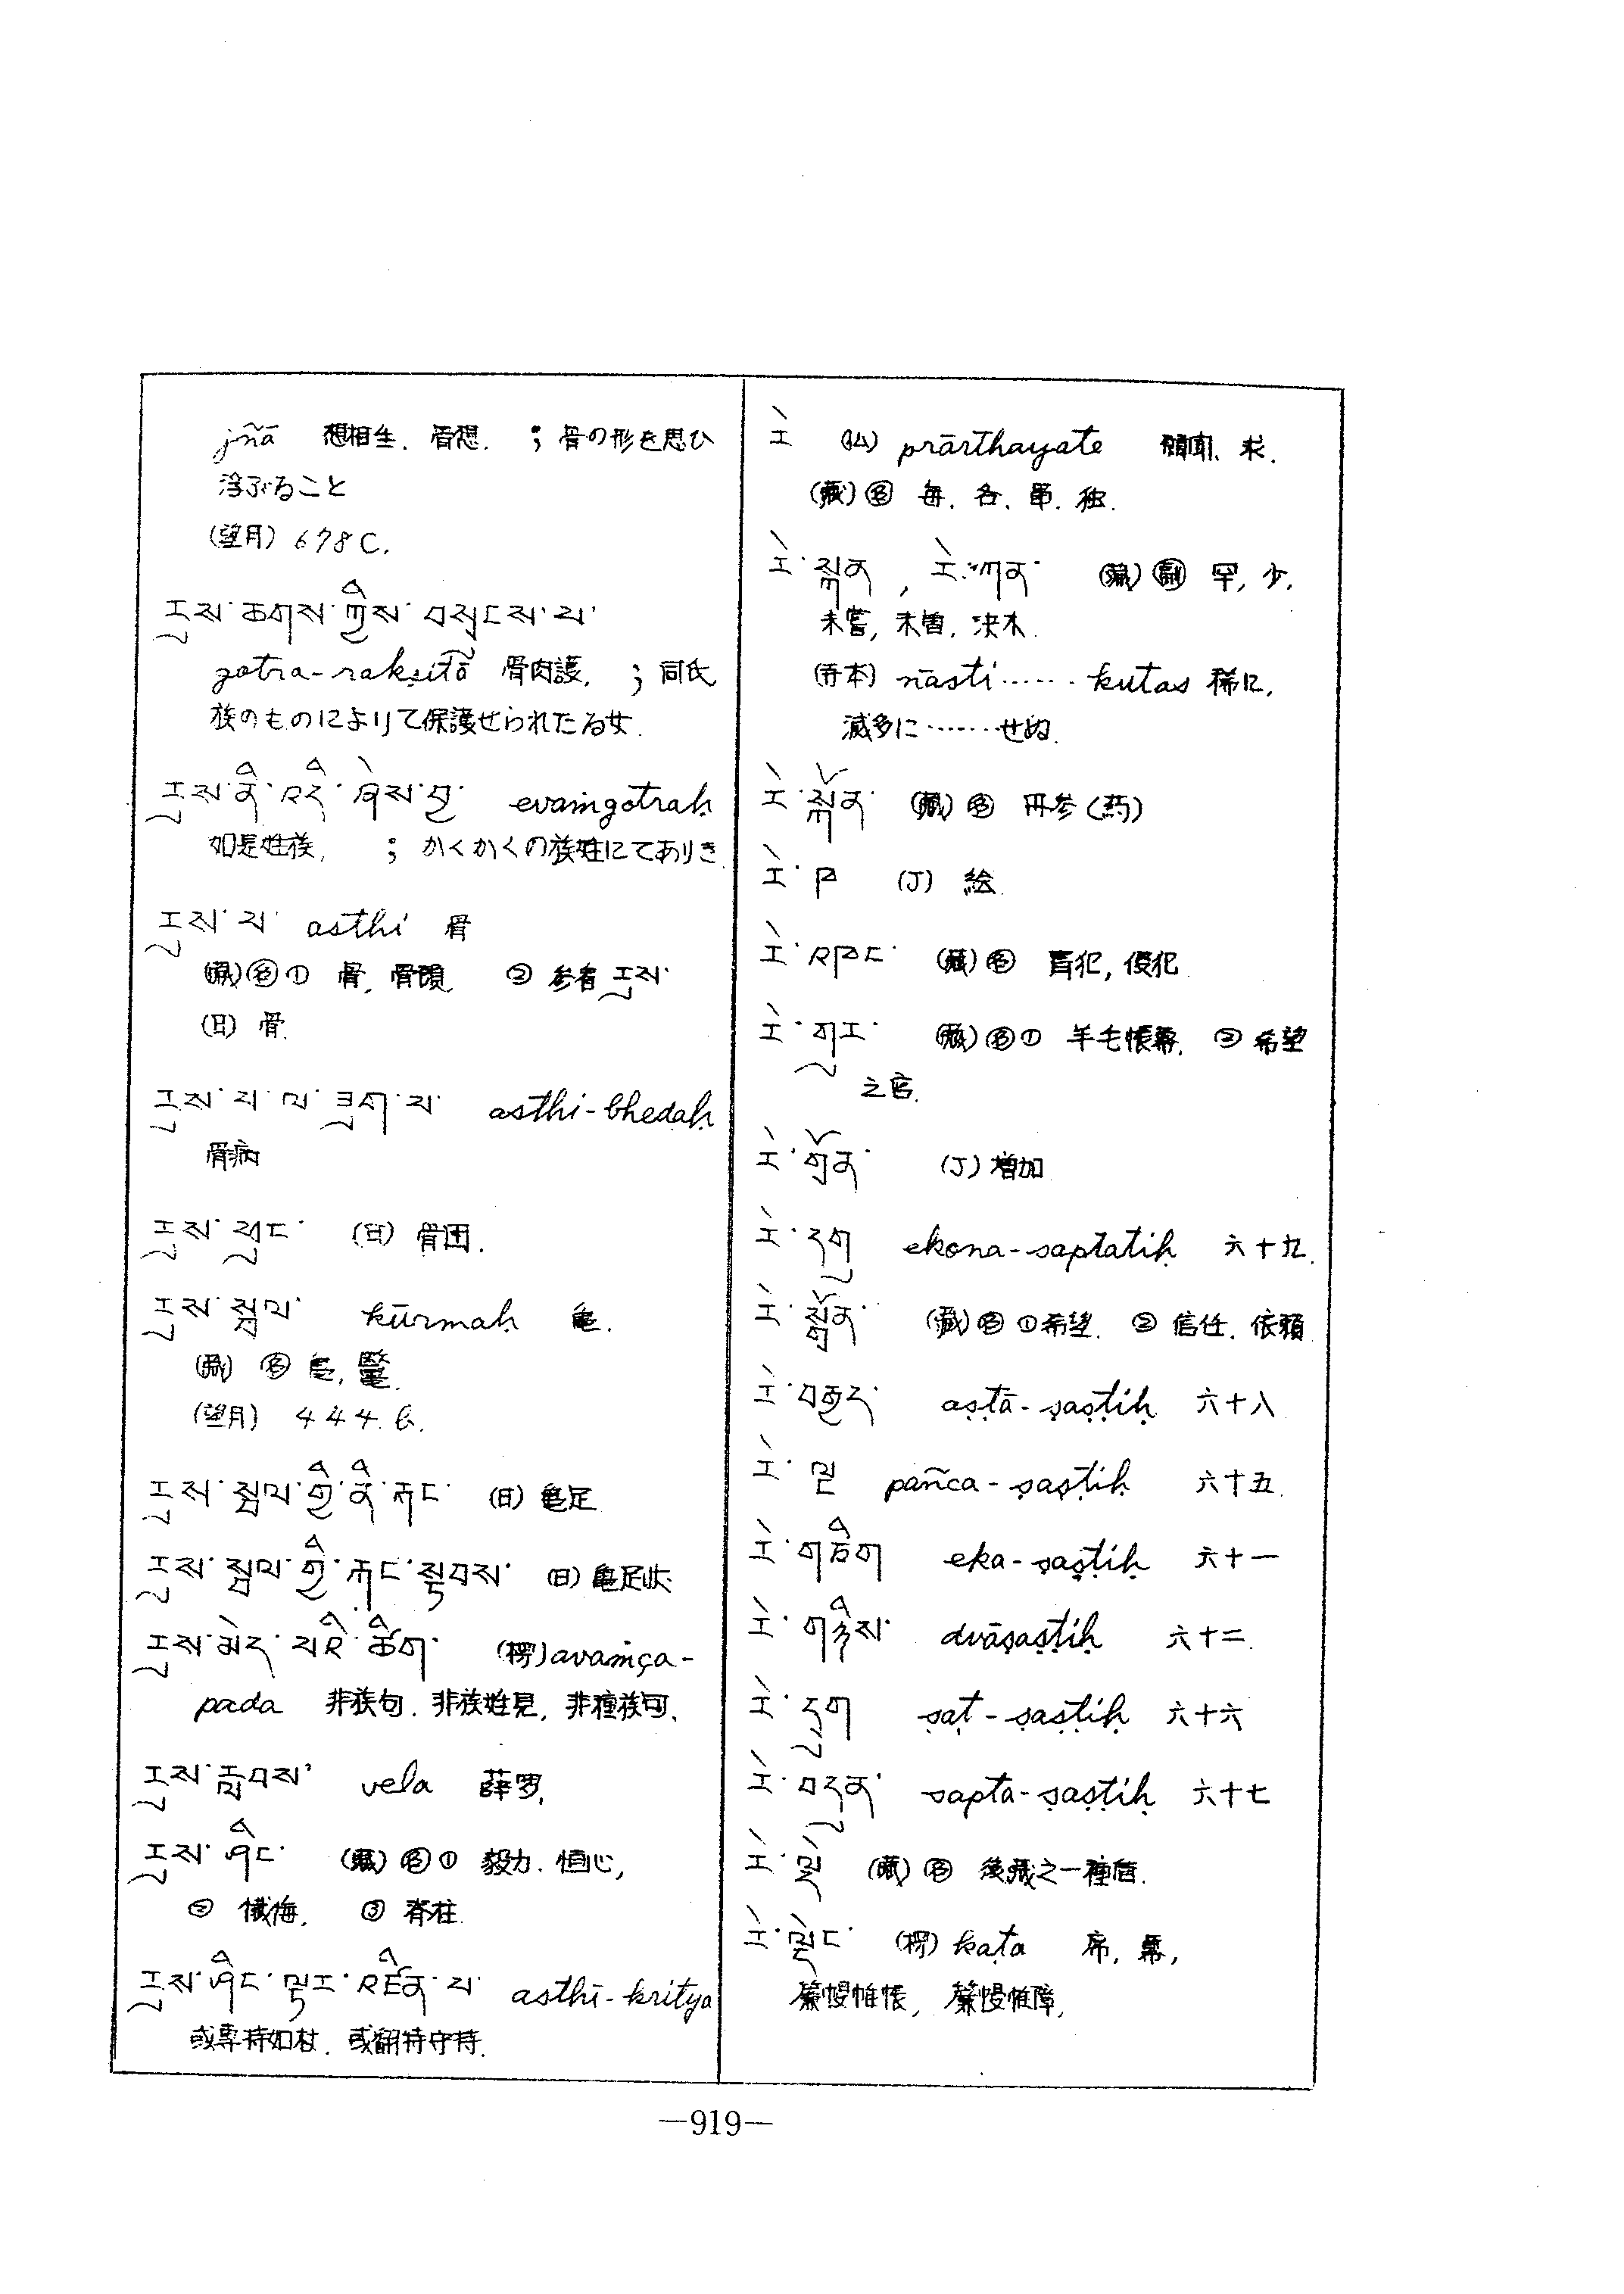 jñā 想相生. 骨想. ; 骨の形を思ひ
浮ぶること
(望月) 678C.
རུས་ཆགས་ཀྱིས་བསྲུངས་པ་
gotra-rakṣitā 骨肉護. ; 同氏
族のものによりて保護せられたる女.
རུས་ནི་འདི་ཞེས་བྱ་ evaṁgotraḥ
如是姓族, ; かくかくの族姓にてありき.
རུས་པ་ asthi 骨
(藏)㊔① 骨, 骨頭, ② 参看 རུས་
(日) 骨.
རུས་པ་ལ་ཟུག་པ་ asthi-bhedaḥ
骨病
རུས་སུང་ (日) 骨困.
རུས་སྦལ་ kūrmaḥ 亀.
(藏) ㊔ 龟, 鼈.
(望月) 444.b.
རུས་སྦལ་གྱི་ནི་རྐང་ (日) 亀足
རུས་སྦལ་གྱི་རྐང་སྟབས་ (日) 亀足状
རུས་མེད་པའི་ཚིག་ (楞) avaṁça-
pada 非族句. 非族姓見, 非種族句.
རུས་རླབས་ vela 薜罗,
རུས་ཤིང་ (藏)㊔① 毅力. 恒心,
② 懺悔. ③ 脊柱.
རུས་ཤིང་ལྟར་འཛིན་པ་ asthī-kritya
或專持如杖. 或翻持守持.
རེ (仏) prārthayate 願聞, 求.
(藏)㊔ 每, 各, 單, 独.
རེ་སྐན , རེ་ཀན་ (藏)㊖ 罕, 少,
未嘗, 未曽, 決不.
(寺本) nāsti…… kutas 稀に,
滅多に……せぬ.
རེ་སྐོན་ (藏)㊔ 丹参(药)
རེ་ཁ (J) 絵.
རེ་འཁང་ (藏)㊔ 責犯, 侵犯.
རེ་གུར་ (藏)㊔① 羊毛帳幕, ② 希望
之宮.
རེ་གྲོན་ (J) 増加
རེ་དགུ ekona-saptatiḥ 六十九.
རེ་སྒྲོན་ (藏)㊔①希望. ② 信任. 依賴.
རེ་བརྒྱད་ aṣṭā-ṣaṣṭiḥ 六十八
རེ་ལྔ pañca-ṣaṣṭiḥ 六十五.
རེ་གཅིག eka-ṣaṣṭiḥ 六十一
རེ་གཉིས་ dvāṣaṣṭiḥ 六十二.
རེ་དྲུག ṣaṭ-ṣaṣṭiḥ 六十六
རེ་བདུན་ sapta-ṣaṣṭiḥ 六十七
རེ་ལྡེ (藏)㊔ 後藏之一種盾.
རེ་ལྡེང་ (楞) kaṭa 席, 幕,
簾幔帷帳, 簾幔帷障,
—919—